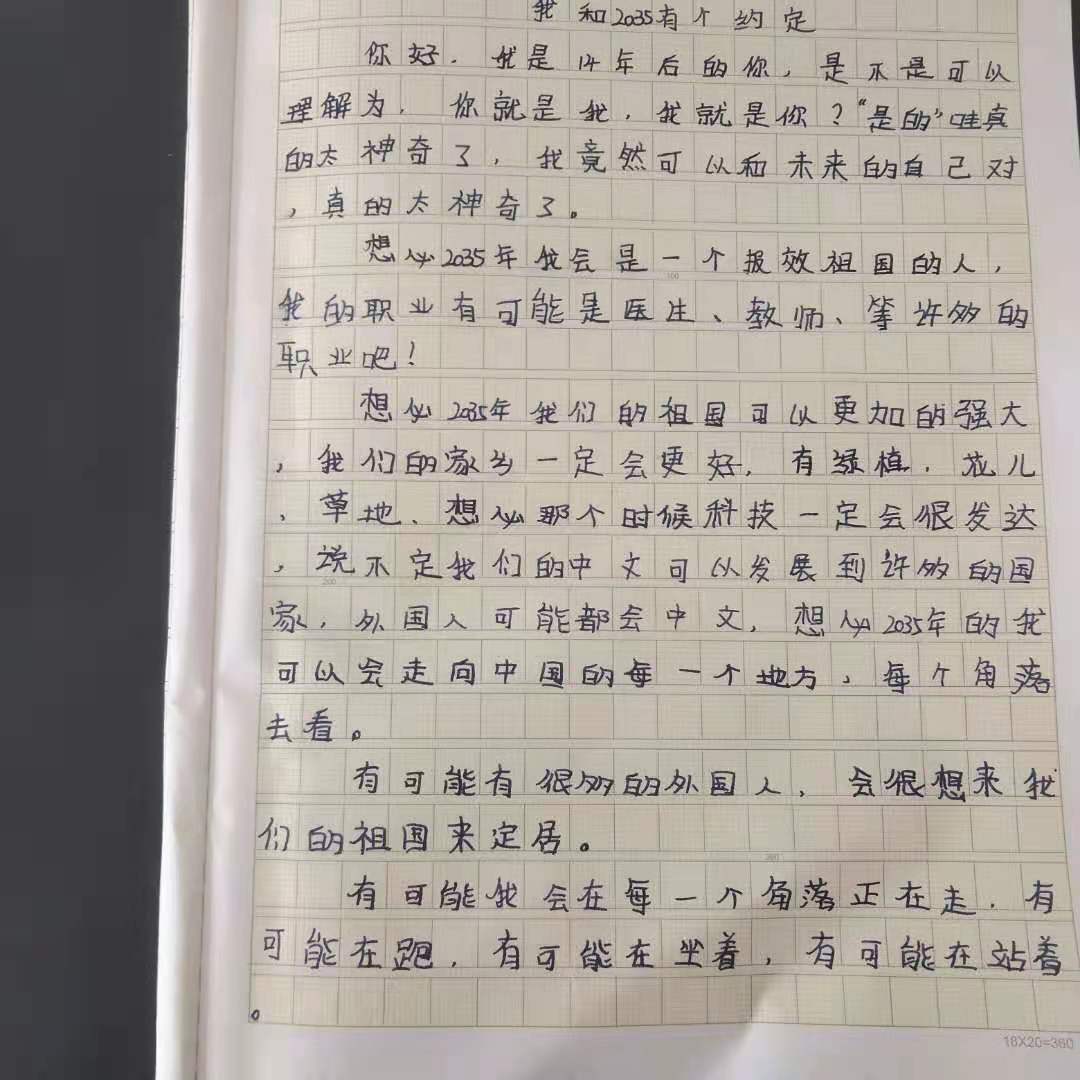 我和2035有个约定
你好，我是14年后的你，是不是可以
理解为，你就是我，我就是你？“是的”哇真
的太神奇了，我竟然可以和未来的自己对
，真的太神奇了。
想必2035年我会是一个报效祖国的人，
我的职业有可能是医生、教师、等许多的
职业吧！
想必2035年我们的祖国可以更加的强大
，我们的家乡一定会更好，有绿植，花儿
、草地、想必那个时候科技一定会很发达
，说不定我们的中文可以发展到许多的国
家，外国人可能都会中文，想必2035年的我
可以会走向中国的每一个地方，每个角落
去看。
有可能有很多的外国人，会很想来我
们的祖国来定居。
有可能我会在每一个角落正在走，有
可能在跑，有可能在坐着，有可能在站着
。
18X20=360